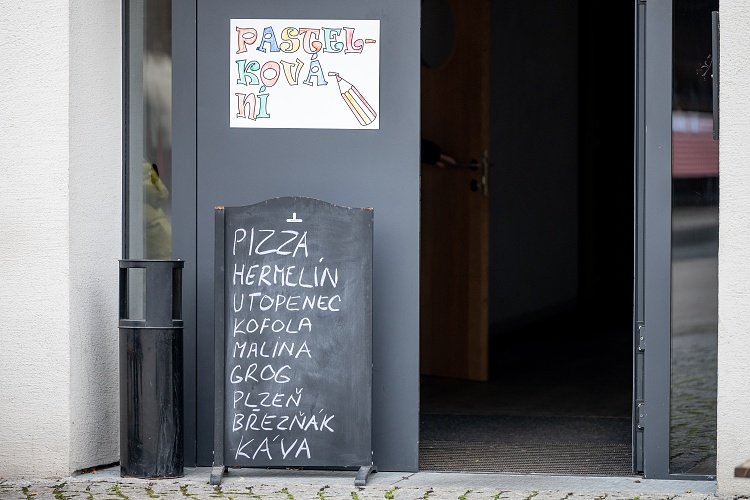 PASTEL-
KOVÁ-
NÍ
PIZZA
HERMELÍN
UTOPENEC
KOFOLA
MALINA
GROG
PLZEŇ
BŘEZŇÁK
KÁVA